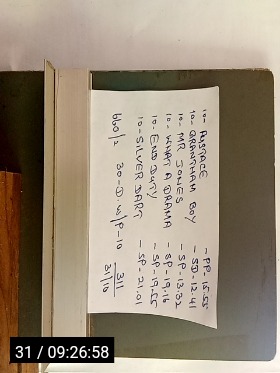 10- AUSTACE - PP-15.55
10- GRANTHAM BOY - SD-12.41
10- MR JONES - SP-13.32
10- WHAT A DRAMA - SP-19.16
10- END DUTY - SP-19.55
10- SILVER DART - SP-21.01
30-D. W/P-10
311
31/10
31 / 09:26:58